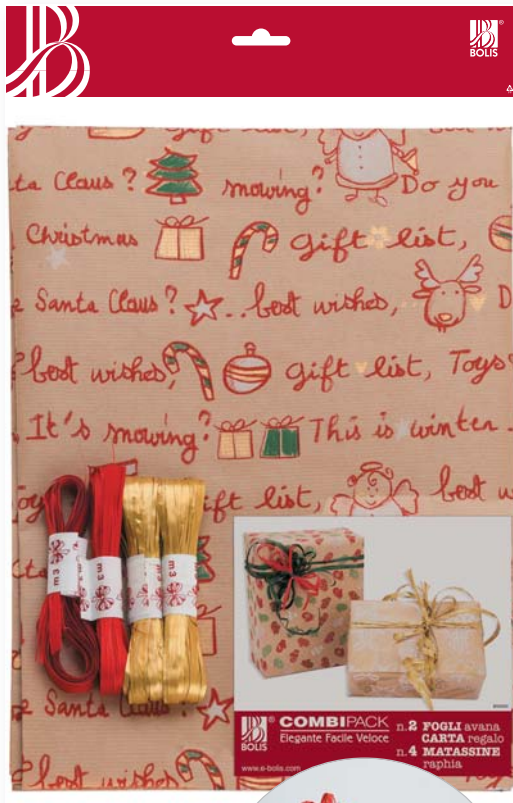 BOLIS
gift list,
ta Claus ? snowing? Do you
Christmas gift list,
Santa Claus ? ... best wishes, D
best wishes, gift list, Toys
It's snowing? This is winter
gift list, best w
m 3
m 3
m 3
Santa Claus ?
best wishes
BOLIS
COMBIPACK
Elegante Facile Veloce
n.2 FOGLI avana
CARTA regalo
n.4 MATASSINE
raphia
www.e-bolis.com